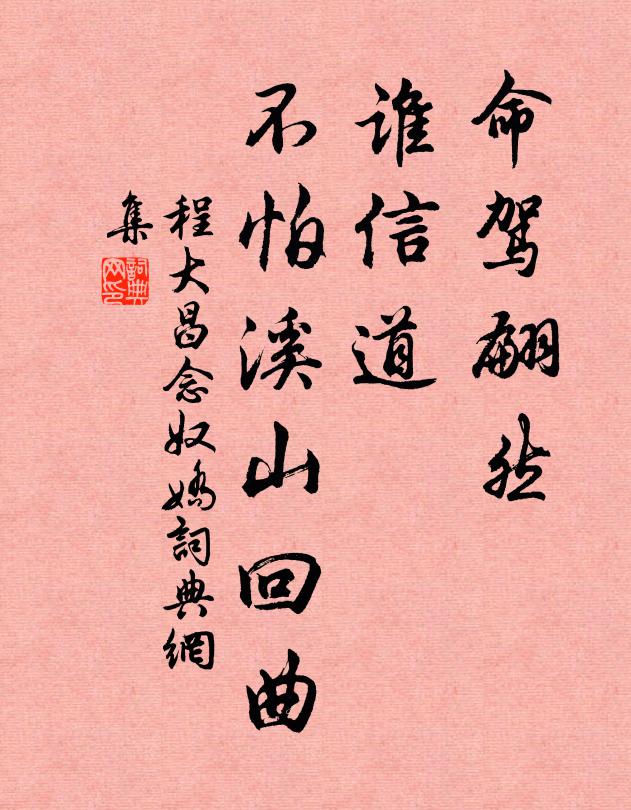 命駕翩然
誰信道
不怕溪山回曲
程大昌念奴嬌詞典網
集
詞典
网印